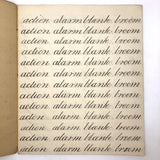 action alarm blank broom
action alarm blank broom
action alarm blank broom
action alarm blank broom
action alarm blank broom
action alarm blank broom
action alarm blank broom
action alarm blank broom
action alarm blank broom
action alarm blank broom
action alarm blank broom
action alarm blank broom